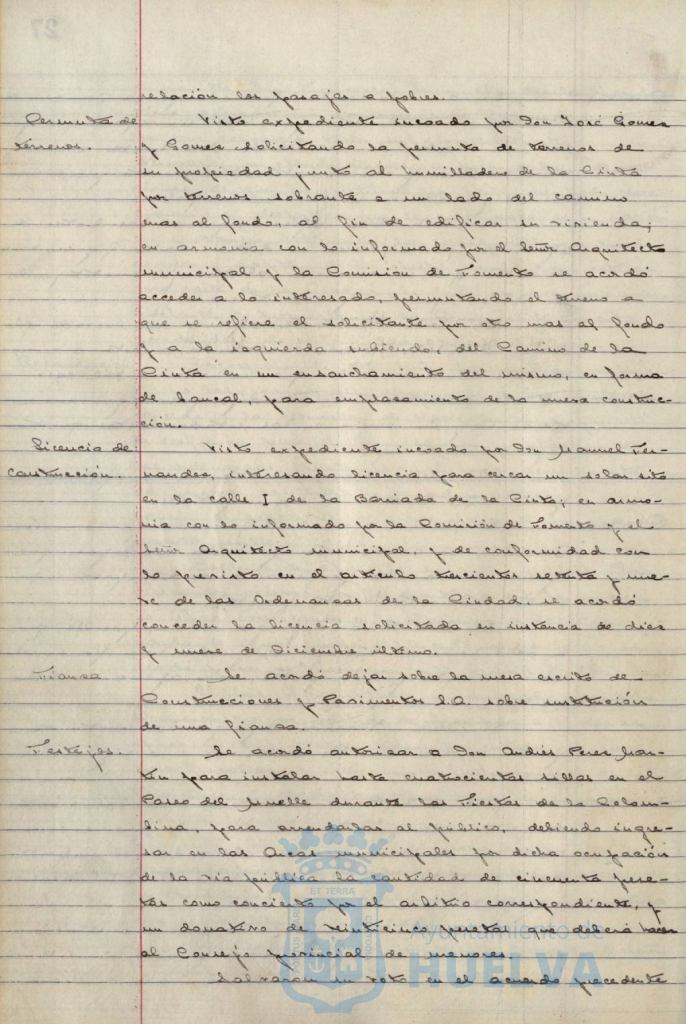 27
relación los pasajes a pobres.
Permuta de terrenos.
Visto expediente incoado por Don José Gómez
y Gomez solicitando la permuta de terrenos de
su propiedad junto al humilladero de la Cinta
por terrenos sobrante a un lado del camino
mas al fondo, al fin de edificar su vivienda;
en armonia con lo informado por el Señor Arquitecto
municipal y la Comisión de Fomento se acordó
acceder a lo interesado, permutando el terreno a
que se refiere el solicitante por otro mas al fondo
y a la izquierda subiendo, del Camino de la
Cinta en un ensanchamiento del mismo, en forma
de bancal, para emplazamiento de la nueva construc-
ción.
Licencia de construcción.
Visto expediente incoado por Don Manuel Fer-
nandez, interesando licencia para cercar un solar sito
en la calle I de la Barriada de la Cinta; en armo-
nia con lo informado por la Comisión de Fomento y el
Señor Arquitecto municipal, y de conformidad con
lo previsto en el artículo trescientos setenta y nue-
ve de las Ordenanzas de la Ciudad, se acordó
conceder la licencia solicitada en instancia de diez
y nueve de Diciembre último.
Fianza
Se acordó dejar sobre la mesa escrito de
Construcciones y Pavimentos S.A. sobre sustitución
de una fianza.
Festejos.
Se acordó autorizar a Don Andrés Perez Mar-
tin para instalar hasta cuatrocientas sillas en el
Paseo del Muelle durante las Fiestas de la Colom-
bina, para arrendarlas al público, debiendo ingre-
sar en las Arcas municipales por dicha ocupación
de la vía pública la cantidad de cincuenta pese-
tas como concierto por el arbitrio correspondiente, y
un donativo de veinticinco pesetas que deberá hacer
al Consejo provincial de menores.
Salvaron su voto en el acuerdo precedente
ET TERRA
Ayuntamiento de
HUELVA